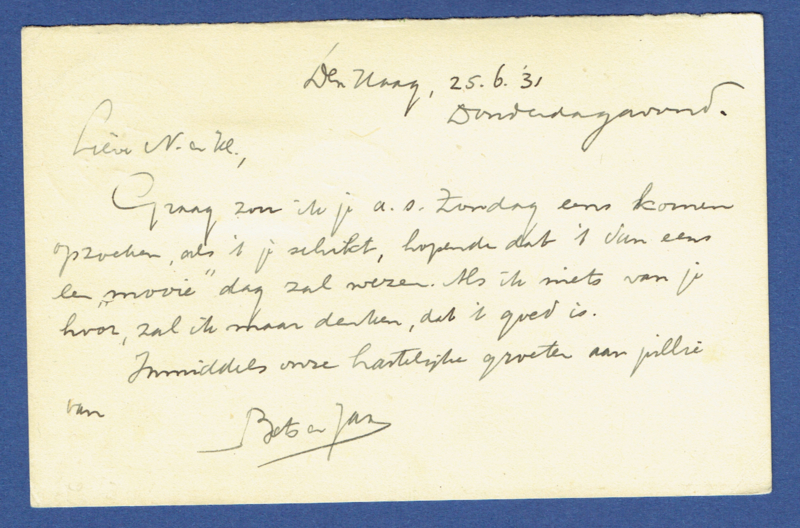 Den Haag, 25.6.'31
Donderdagavond.
Lieve N. en W.,
Graag zou ik je a.s. Zondag eens komen
opzoeken, als 't je schikt, hopende dat 't dan eens
een „mooie" dag zal wezen. Als ik niets van je
hoor, zal ik maar denken, dat 't goed is.
Inmiddels onze hartelijke groeten aan jullie
van
Bets en Jan